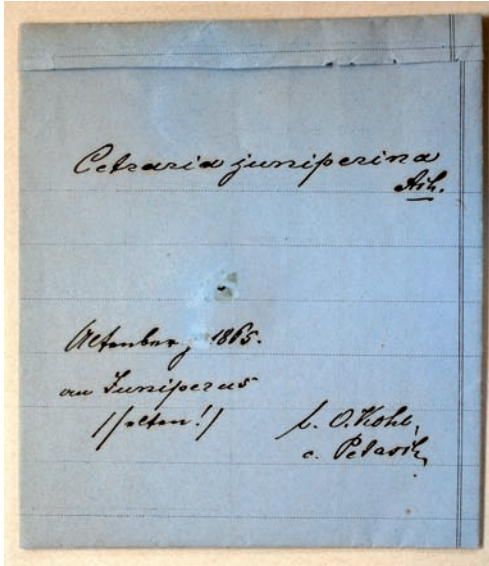 Cetraria juniperina
Ach.
Altenberg 1865.
an Juniperus
/selten!/
O. Kohl,
c.